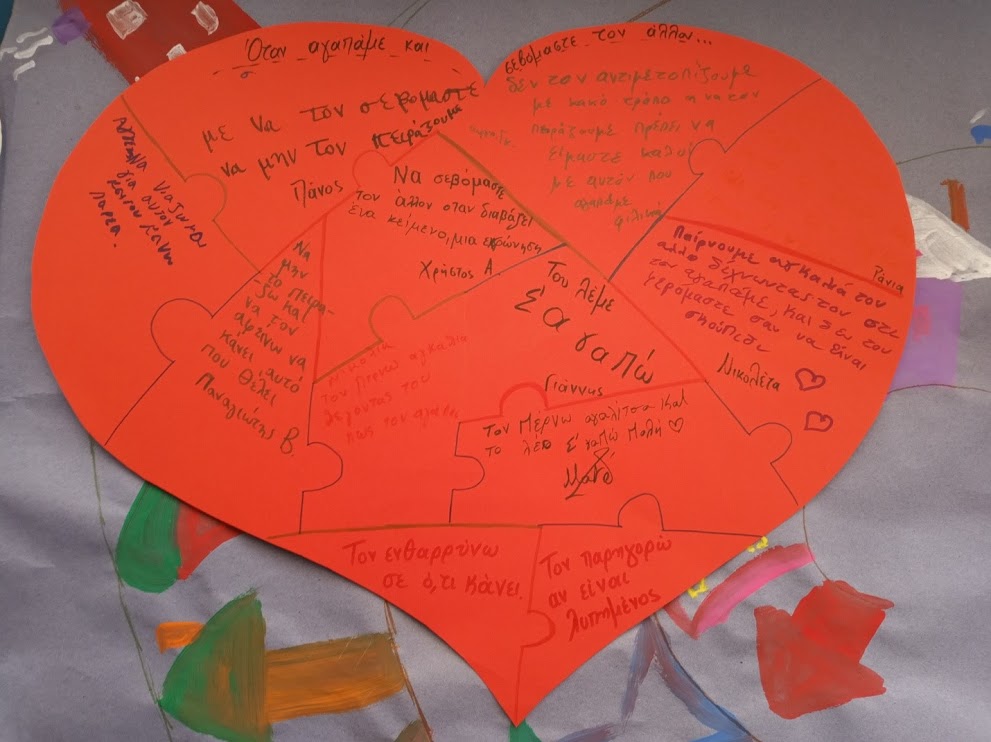 Όταν αγαπάμε και
σεβόμαστε τον άλλον...
με να τον σεβομαστε
να μην τον πειράξουμε
Πάνος
δεν τον αντιμετοπίζουμε
με κακό τρόπο η να τον
πειράξουμε πρέπει να
είμαστε καλοί
με αυτόν που
αγαπάμε
φιλικά
Ράνια
να νιαζομαι
για αυτον
παρεα.
Να σεβόμαστε
τον άλλον οταν διαβάζει
ένα κείμενο, μια εκφώνηση
Χρήστος Α.
Να
μην
το πειρα-
-ξω και
να τον
αφείνω να
κάνει αυτό
που θέλει
Παναγιώτης Β.
Του λέμε
Σ'α
γαπώ
Γιάννης
Παίρνουμε αγκαλιά τον
άλλο δέχνωντας του ότι
τον αγαπάμε, και δεν του
φερόμαστε σαν να είναι
σκουπίδι
Νικολέτα
τον πέρνω αγκαλια
δειχοντας του
πως τον αγαπώ
Τον Πέρνω αγαλίτσα Και
το λέω Σ' γαπώ Πολή ♡
Τον ενθαρρύνω
σε ό,τι κάνει.
Τον παρηγορώ
αν είναι
λυπημένος